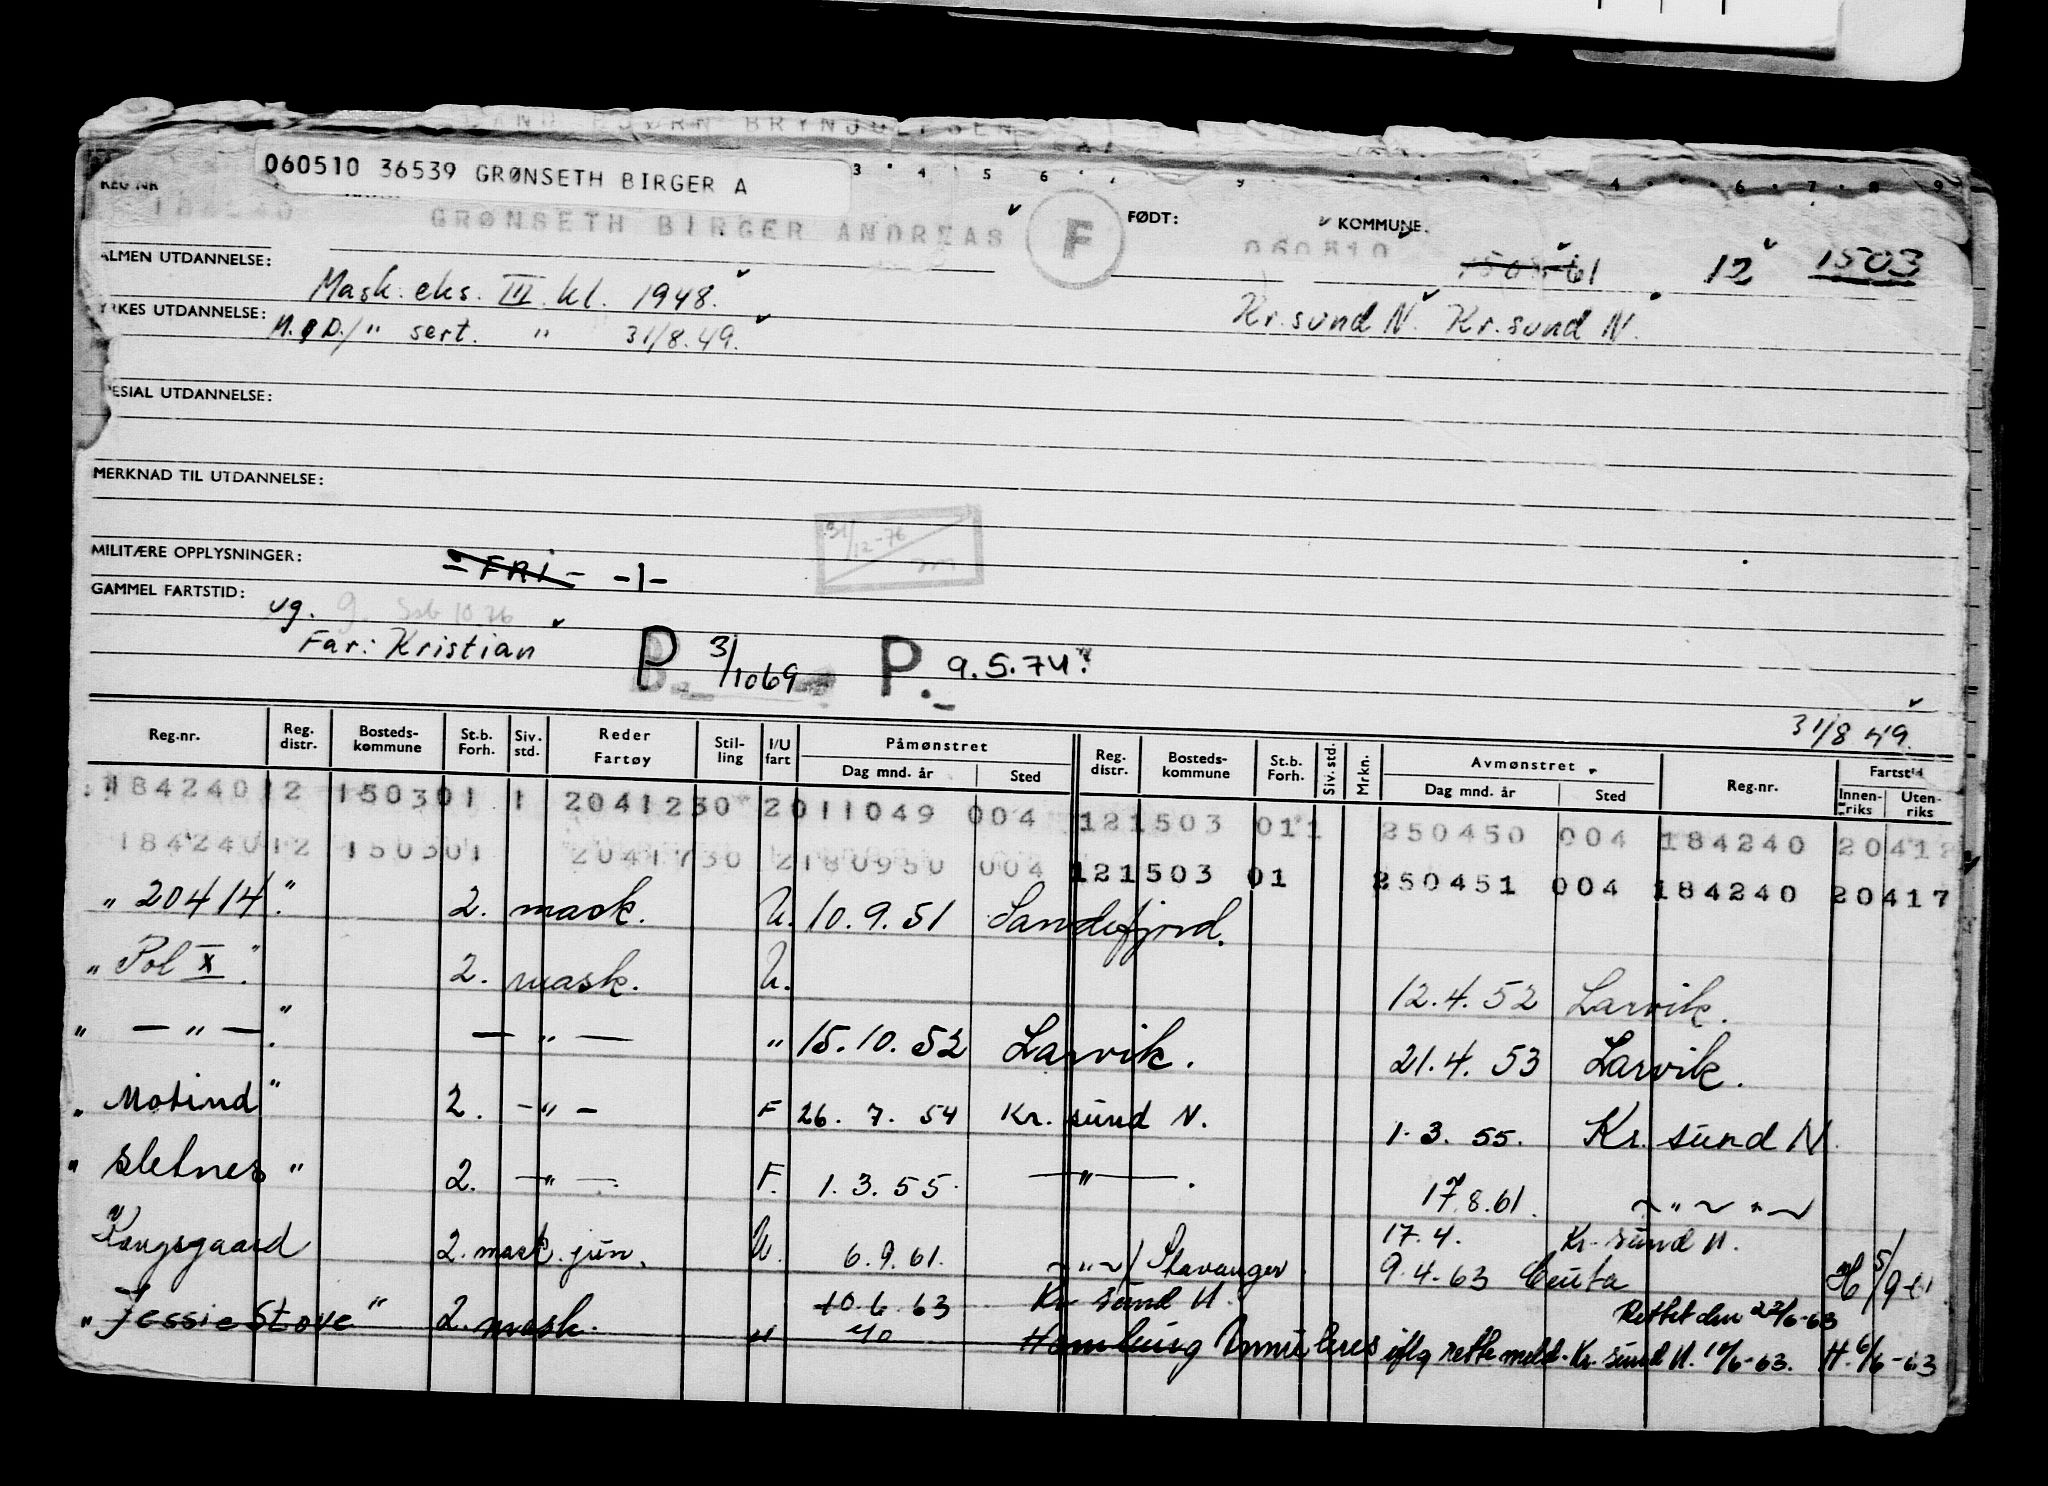 060510 36539 GRØNSETH BIRGER A
REG NR
184240 GRØNSETH BIRGER ANDREAS F FØDT: 060510 KOMMUNE.
61 12 1503
ALMEN UTDANNELSE: Mask. eks. III. kl. 1948.
Kr.sund N. Kr.sund N.
YRKES UTDANNELSE: M. D/" sert. " 31/8.49.
SPESIAL UTDANNELSE:
MERKNAD TIL UTDANNELSE:
31/12-76
MILITÆRE OPPLYSNINGER: - FRI - -1-
GAMMEL FARTSTID: ug.
Far: Kristian P 3/1069 P. 9.5.74.
31/8 49.
Reg.nr. Reg. distr. Bosteds- kommune St.b. Forh. Siv. std. Reder Fartøy Stil- ling I/U fart Påmønstret Dag mnd. år Sted Reg. distr. Bosteds- kommune St.b. Forh. Siv. std. Mrkn. Avmønstret Dag mnd. år Sted Reg.nr. Fartstid Innen- riks Uten- riks
184240 12 150301 1 2041230 2011049 004 121503 011 250450 004 184240 20412
184240 12 150301 2041730 2180950 004 121503 01 250451 004 184240 20417
" 20414 " 2. mask. U. 10.9.51 Sandefjord.
" Pol X " 2. mask. U. 12.4.52 Larvik.
" — " — " — " — " 15.10.52 Larvik. 21.4.53 Larvik.
" Motind " 2. - " - F 26.7.54 Kr. sund N. 1.3.55. Kr. sund N.
" Sletnes " 2. — " — F. 1.3.55. — " —. 17.8.61. ~ " ~ " ~
Kongsgaard 2. mask. jun. U. 6.9.61. ~ " ~ / Stavanger. 17.4. Kr. sund N.
9.4.63 Ceuta H 5/9-61
10.6.63 Kr sund N. Rettet den 22/6-63
" Jessie Stove " 2. mask. " 40 Hamburg iflg rette meld. Kr. sund N. 10/6-63. H. 6/6-63